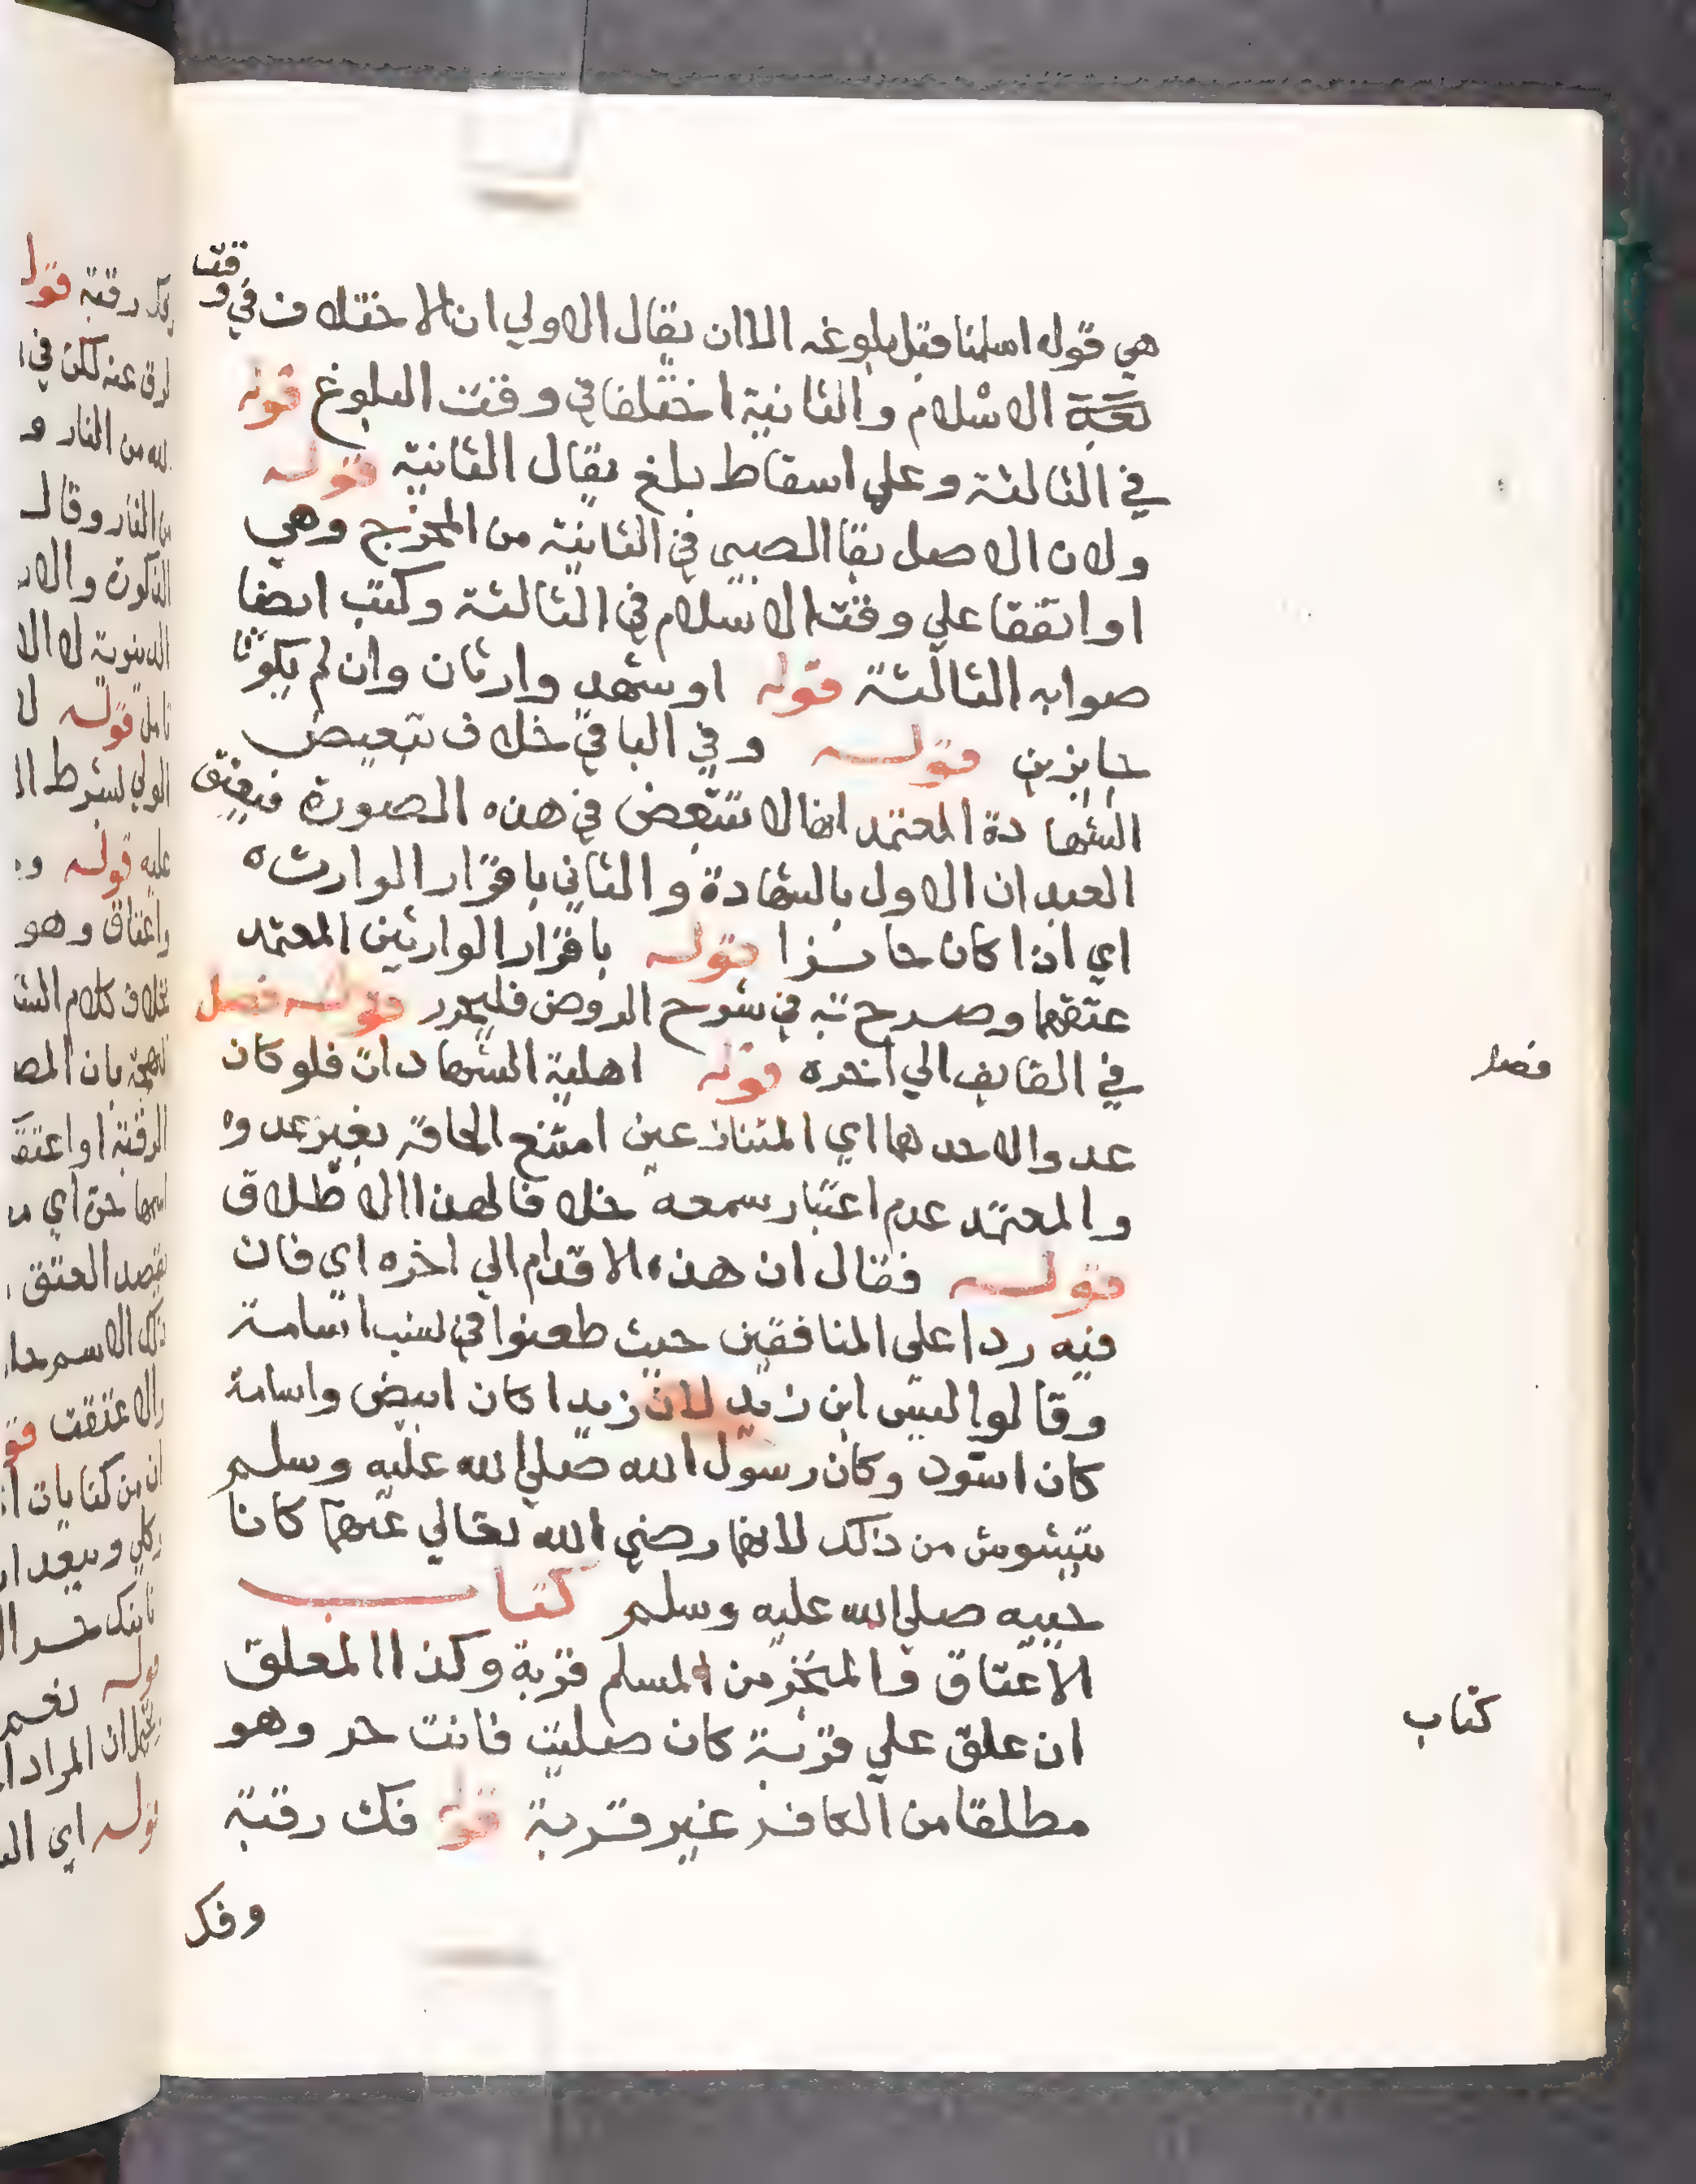 هي قوله اسلمنا قبل بلوغه الا ان يقال الاولي ان الاختلاف في وقت
الاسلام والثانية اختلفا في وقت البلوغ قوله
في الثالثة وعلي اسقاط بلغ يقال الثانية قوله
ولان الاصل بقا الصبي في الثانية من المخرج وهي
او اتفقا علي وقت الاسلام في الثالثة وكتب ايضا
صوابه الثالثة قوله او شهد وارثان وان لم يكونا
حايزين قوله وفي الباقي خلاف تبعيض
الشهادة المعتمد انها لا تتبعض في هذه الصورة فيعتق
العبدان الاول بالشهادة والثاني باقرار الوارث ه
اي اذا كان حائزا قوله باقرار الوارثين المعتمد
عتقهما وصرح به في شرح الروض فليحرر قوله فصل
في القايف الي اخره قوله اهلية الشهادات فلو كان
عدوا لاحدهما اي المتنازعين امتنع الحاقه بغير عدوه
والمعتمد عدم اعتبار سمعه خلافا لهذا الاطلاق
قوله فقال ان هذه الاقدام الي اخره اي فان
فيه ردا علي المنافقين حيث طعنوا في نسب اسامة
وقالوا ليس ابن زيد لان زيدا كان ابيض واسامة
كان اسود وكان رسول الله صلي الله عليه وسلم
يتشوش من ذلك لانهما رضي الله تعالي عنهما كانا
حبيبه صلي الله عليه وسلم كتاب
الاعتاق فالمنجز من المسلم قربة وكذا المعلق
ان علق علي قربة كان صليت فانت حر وهو
مطلقا من الكافر غير قربة قوله فك رقبة
وفك
فصل
كتاب